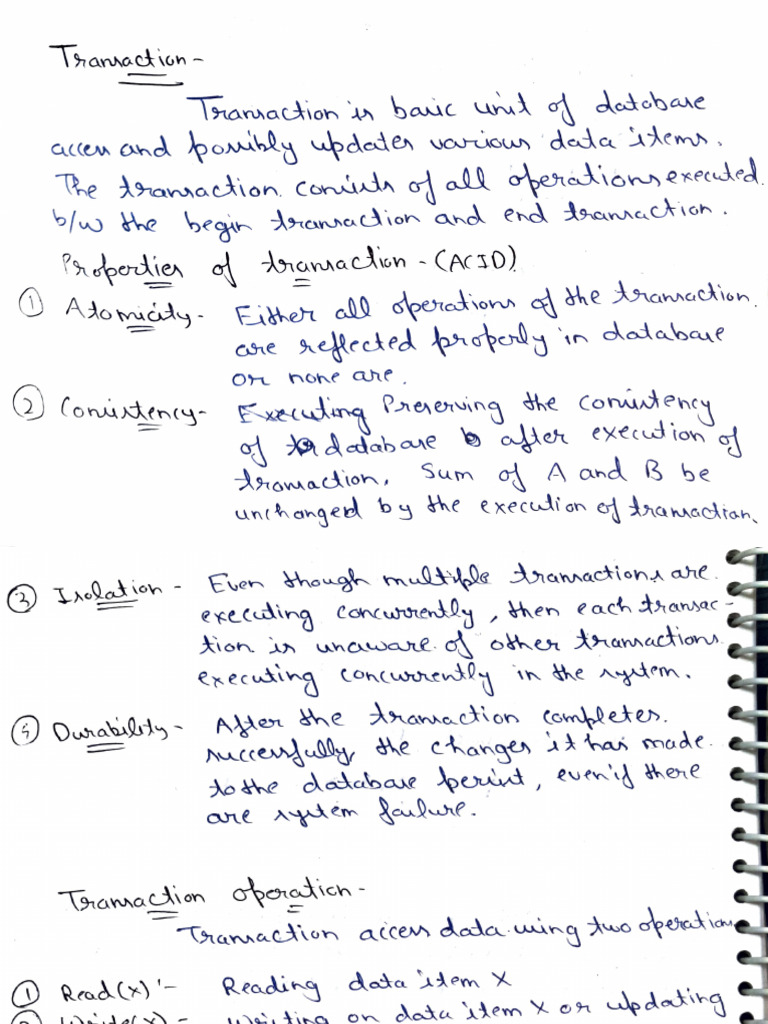 Transaction -
Transaction is basic unit of database
access and possibly updates various data items.
The transaction consists of all operations executed
b/w the begin transaction and end transaction.
Properties of transaction - (ACID)
① Atomicity - Either all operations of the transaction
are reflected properly in database
or none are.
② Consistency - Executing Preserving the consistency
of database after execution of
transaction. Sum of A and B be
unchanged by the execution of transaction.
③ Isolation - Even though multiple transactions are
executing concurrently, then each transac-
tion is unaware of other transactions
executing concurrently in the system.
④ Durability - After the transaction completes
successfully the changes it has made
to the database persist, even if there
are system failure.
Transaction operation -
Transaction access data using two operations
① Read(x) :- Reading data item X
② Write(x) - Writing on data item X or updating